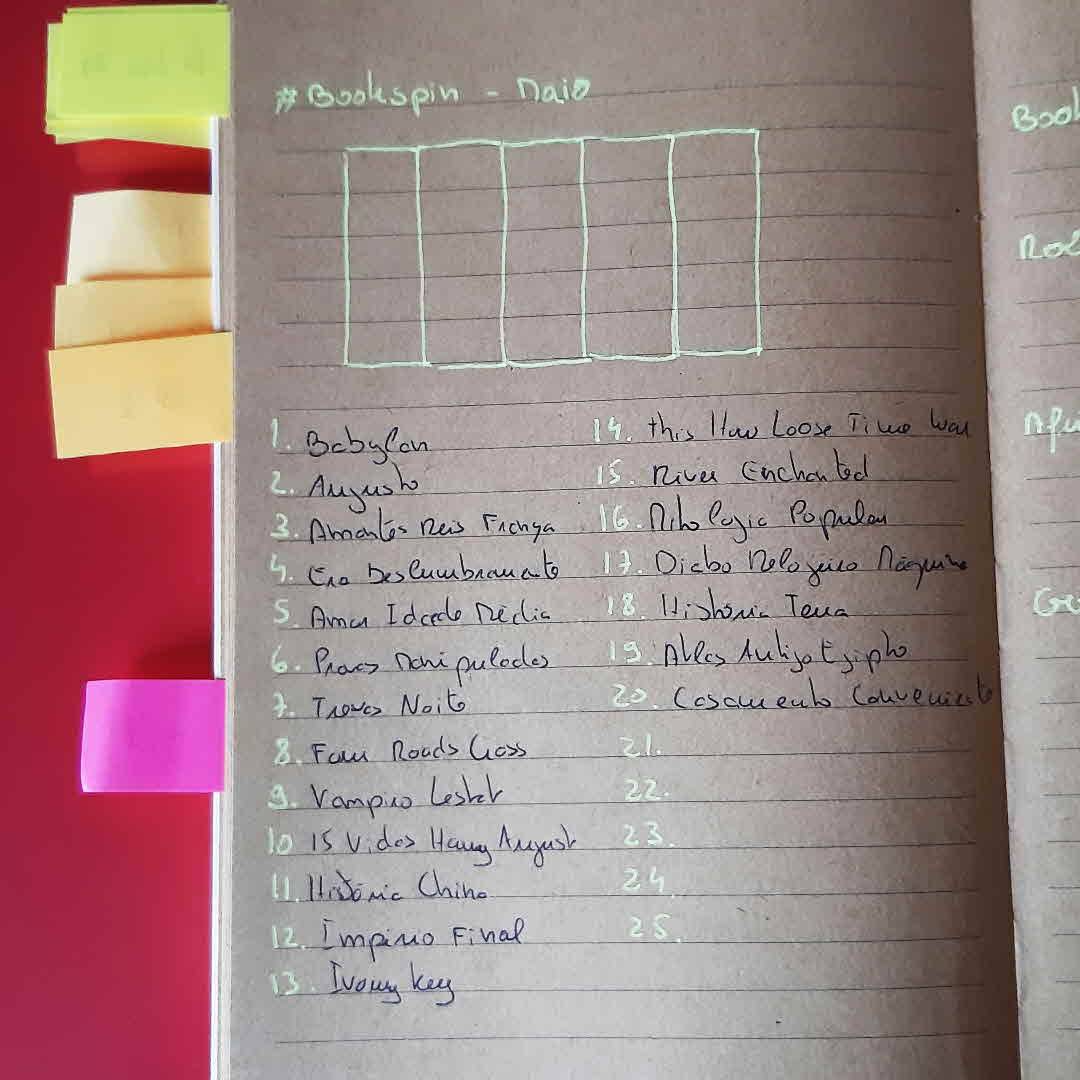 #Bookspin - Maio
1. Babylon
2. Augusto
3. Amantes Reis França
4. Era Deslumbramento
5. Amor Idade Média
6. Provas Manipuladas
7. Trevas Noite
8. Four Roads Cross
9. Vampiro Lestat
10 15 Vidas Harry August
11. História China
12. Império Final
13. Ivory Key
14. this How Loose Time War
15. River Enchanted
16. Mitologia Popular
17. Diabo Relojeiro Máquina
18. História Terra
19. Atlas Antigo Egipto
20. Casamento Conveniente
21.
22.
23.
24.
25.
Book